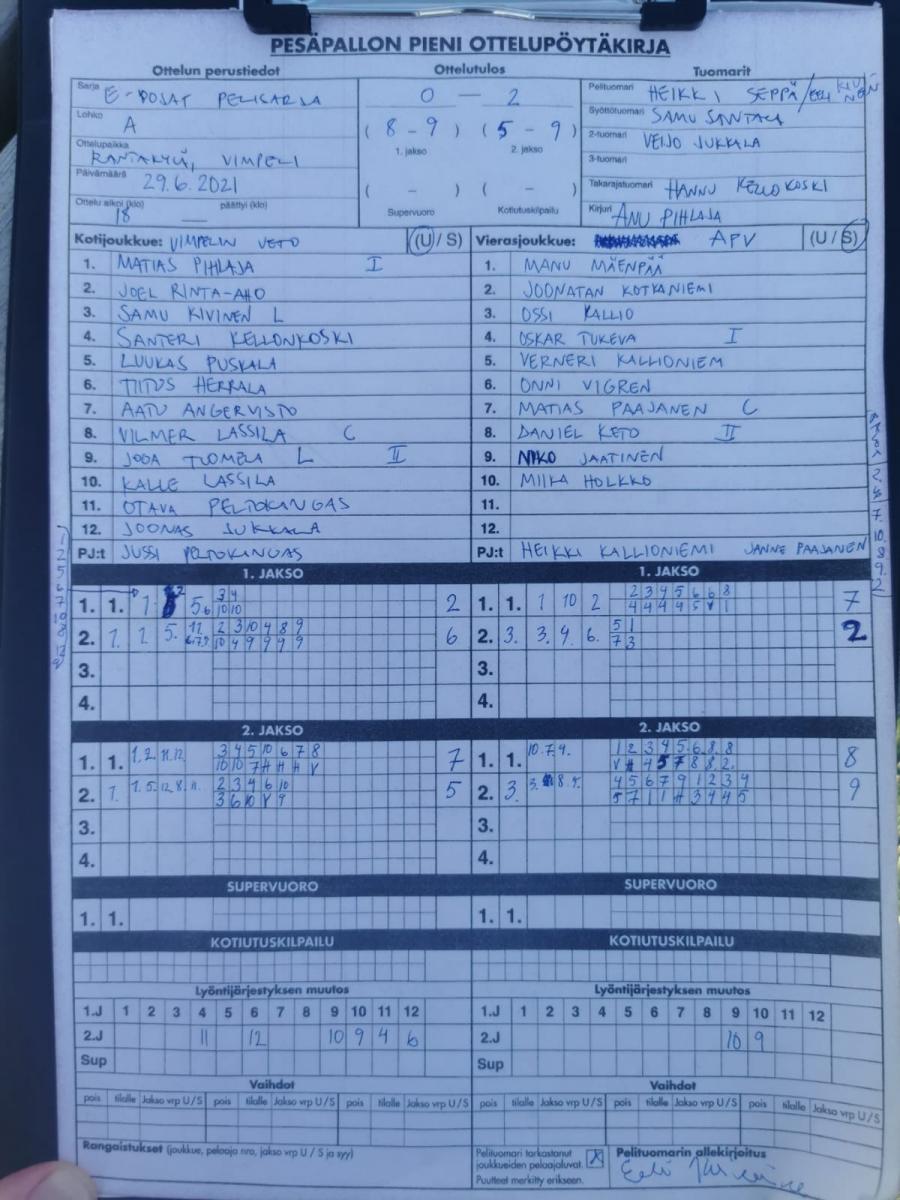 PESÄPALLON PIENI OTTELUPÖYTÄKIRJA
Ottelun perustiedot
Sarja E-POJAT PELISARJA
Lohko A
Ottelupaikka RANTAKYLÄ, VIMPELI
Päivämäärä 29.6.2021
Ottelu alkoi (klo) 18 päättyi (klo)
Ottelutulos
0 - 2
(8 - 9) (5 - 9)
1. jakso 2. jakso
( - ) ( - )
Supervuoro Kotiutuskilpailu
Tuomarit
Pelituomari HEIKKI SEPPÄ/EELI KIVINEN
Syöttötuomari SAMU SANTALA
2-tuomari VEIJO JUKKALA
3-tuomari
Takarajatuomari HANNU KELLOKOSKI
Kirjuri ANU PIHLAJA
Kotijoukkue: VIMPELIN VETO (U / S)
1. MATIAS PIHLAJA I
2. JOEL RINTA-AHO
3. SAMU KIVINEN L
4. SANTERI KELLONKOSKI
5. LUUKAS PUSKALA
6. TIITUS HERRALA
7. AATU ANGERVISTO
8. VILMER LASSILA C
9. JOOA TUOMELA L II
10. KALLE LASSILA
11. OTAVA PELTOKANGAS
12. JOONAS JUKKALA
PJ:t JUSSI PELTOKANGAS
Vierasjoukkue: APV (U / S)
1. MANU MÄENPÄÄ
2. JOONATAN KOTKANIEMI
3. OSSI KALLIO
4. OSKAR TUKEVA I
5. VERNERI KALLIONIEM
6. ONNI VIGREN
7. MATIAS PAAJANEN C
8. DANIEL KETO II
9. NIKO JAATINEN
10. MIIKA HOLKKO
11.
12.
PJ:t HEIKKI KALLIONIEMI JANNE PAAJANEN
1. JAKSO
1. 1. 1. 5. 6 3 4 2
10 10
2. 1. 1. 5. 11. 2 3 10 4 8 9 6
6.7.9. 10 4 9 9 9 9
3.
4.
1. JAKSO
1. 1. 1 10 2 2 3 4 5 6 6 8 7
4 4 4 4 5 V 1
2. 3. 3. 9. 6. 5 1 2
7 3
3.
4.
2. JAKSO
1. 1. 1. 2. 11. 12. 3 4 5 10 6 7 8 7
10 10 7 H H H V
2. 1. 1. 5. 12. 8. 11. 2 3 4 6 10 5
3 6 10 V 9
3.
4.
2. JAKSO
1. 1. 10. 7. 9. 1 2 3 4 5. 6. 8. 8 8
V H 4 5 7 8 8 2.
2. 3. 3. 8. 4 5 6 7 9 1 2 3 4 9
5 7 1 1 H 3 4 4 5
3.
4.
SUPERVUORO
1. 1.
SUPERVUORO
1. 1.
KOTIUTUSKILPAILU
KOTIUTUSKILPAILU
Lyöntijärjestyksen muutos
1.J 1 2 3 4 5 6 7 8 9 10 11 12
2.J 11 12 10 9 4 6
Sup
Lyöntijärjestyksen muutos
1.J 1 2 3 4 5 6 7 8 9 10 11 12
2.J 10 9
Sup
Vaihdot
pois tilalle Jakso vrp U / S pois tilalle Jakso vrp U / S pois tilalle Jakso vrp U / S
Vaihdot
pois tilalle Jakso vrp U / S pois tilalle Jakso vrp U / S pois tilalle Jakso vrp U / S
Rangaistukset (joukkue, pelaaja nro, jakso vrp U / S ja syy)
Pelituomari tarkastanut joukkueiden pelaajaluvat. X
Puutteet merkitty erikseen.
Pelituomarin allekirjoitus
Eeli Kivinen